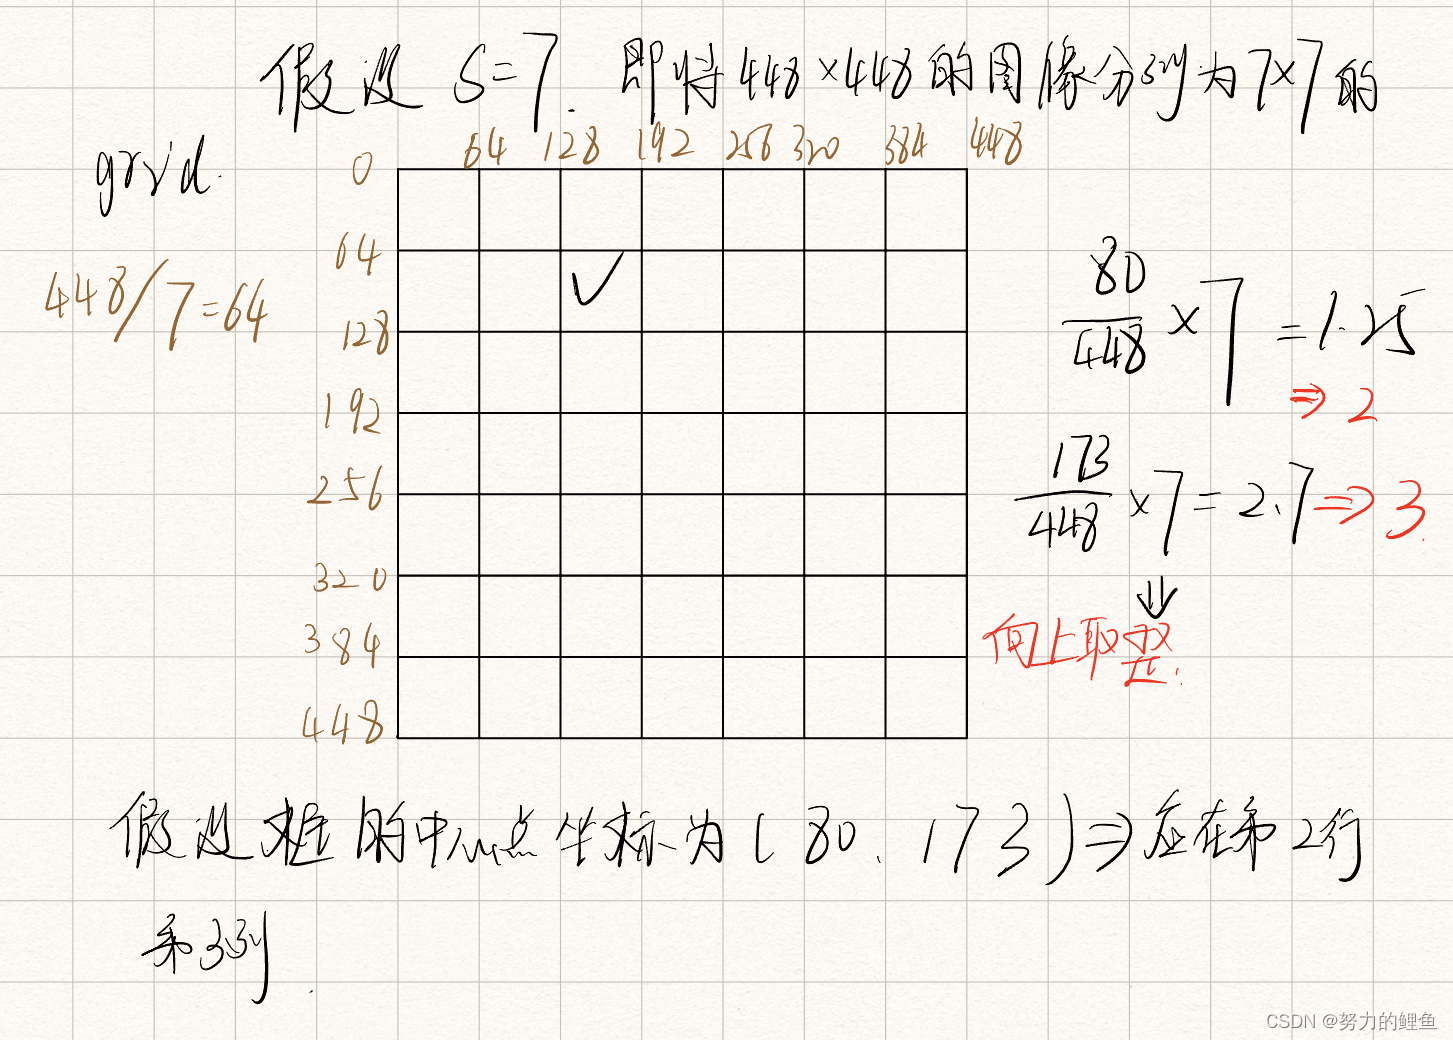 假设 S=7. 即将448×448的图像分列为7×7的
grid.
64 128 192 256 320 384 448
0
64
128
192
256
320
384
448
448/7=64
80/448 × 7 = 1.25
⇒ 2
173/448 × 7 = 2.7 ⇒ 3
⇓
向上取整.
假设框的中心点坐标为(80, 173)⇒应在第2行
第3列.
CSDN @努力的鲤鱼